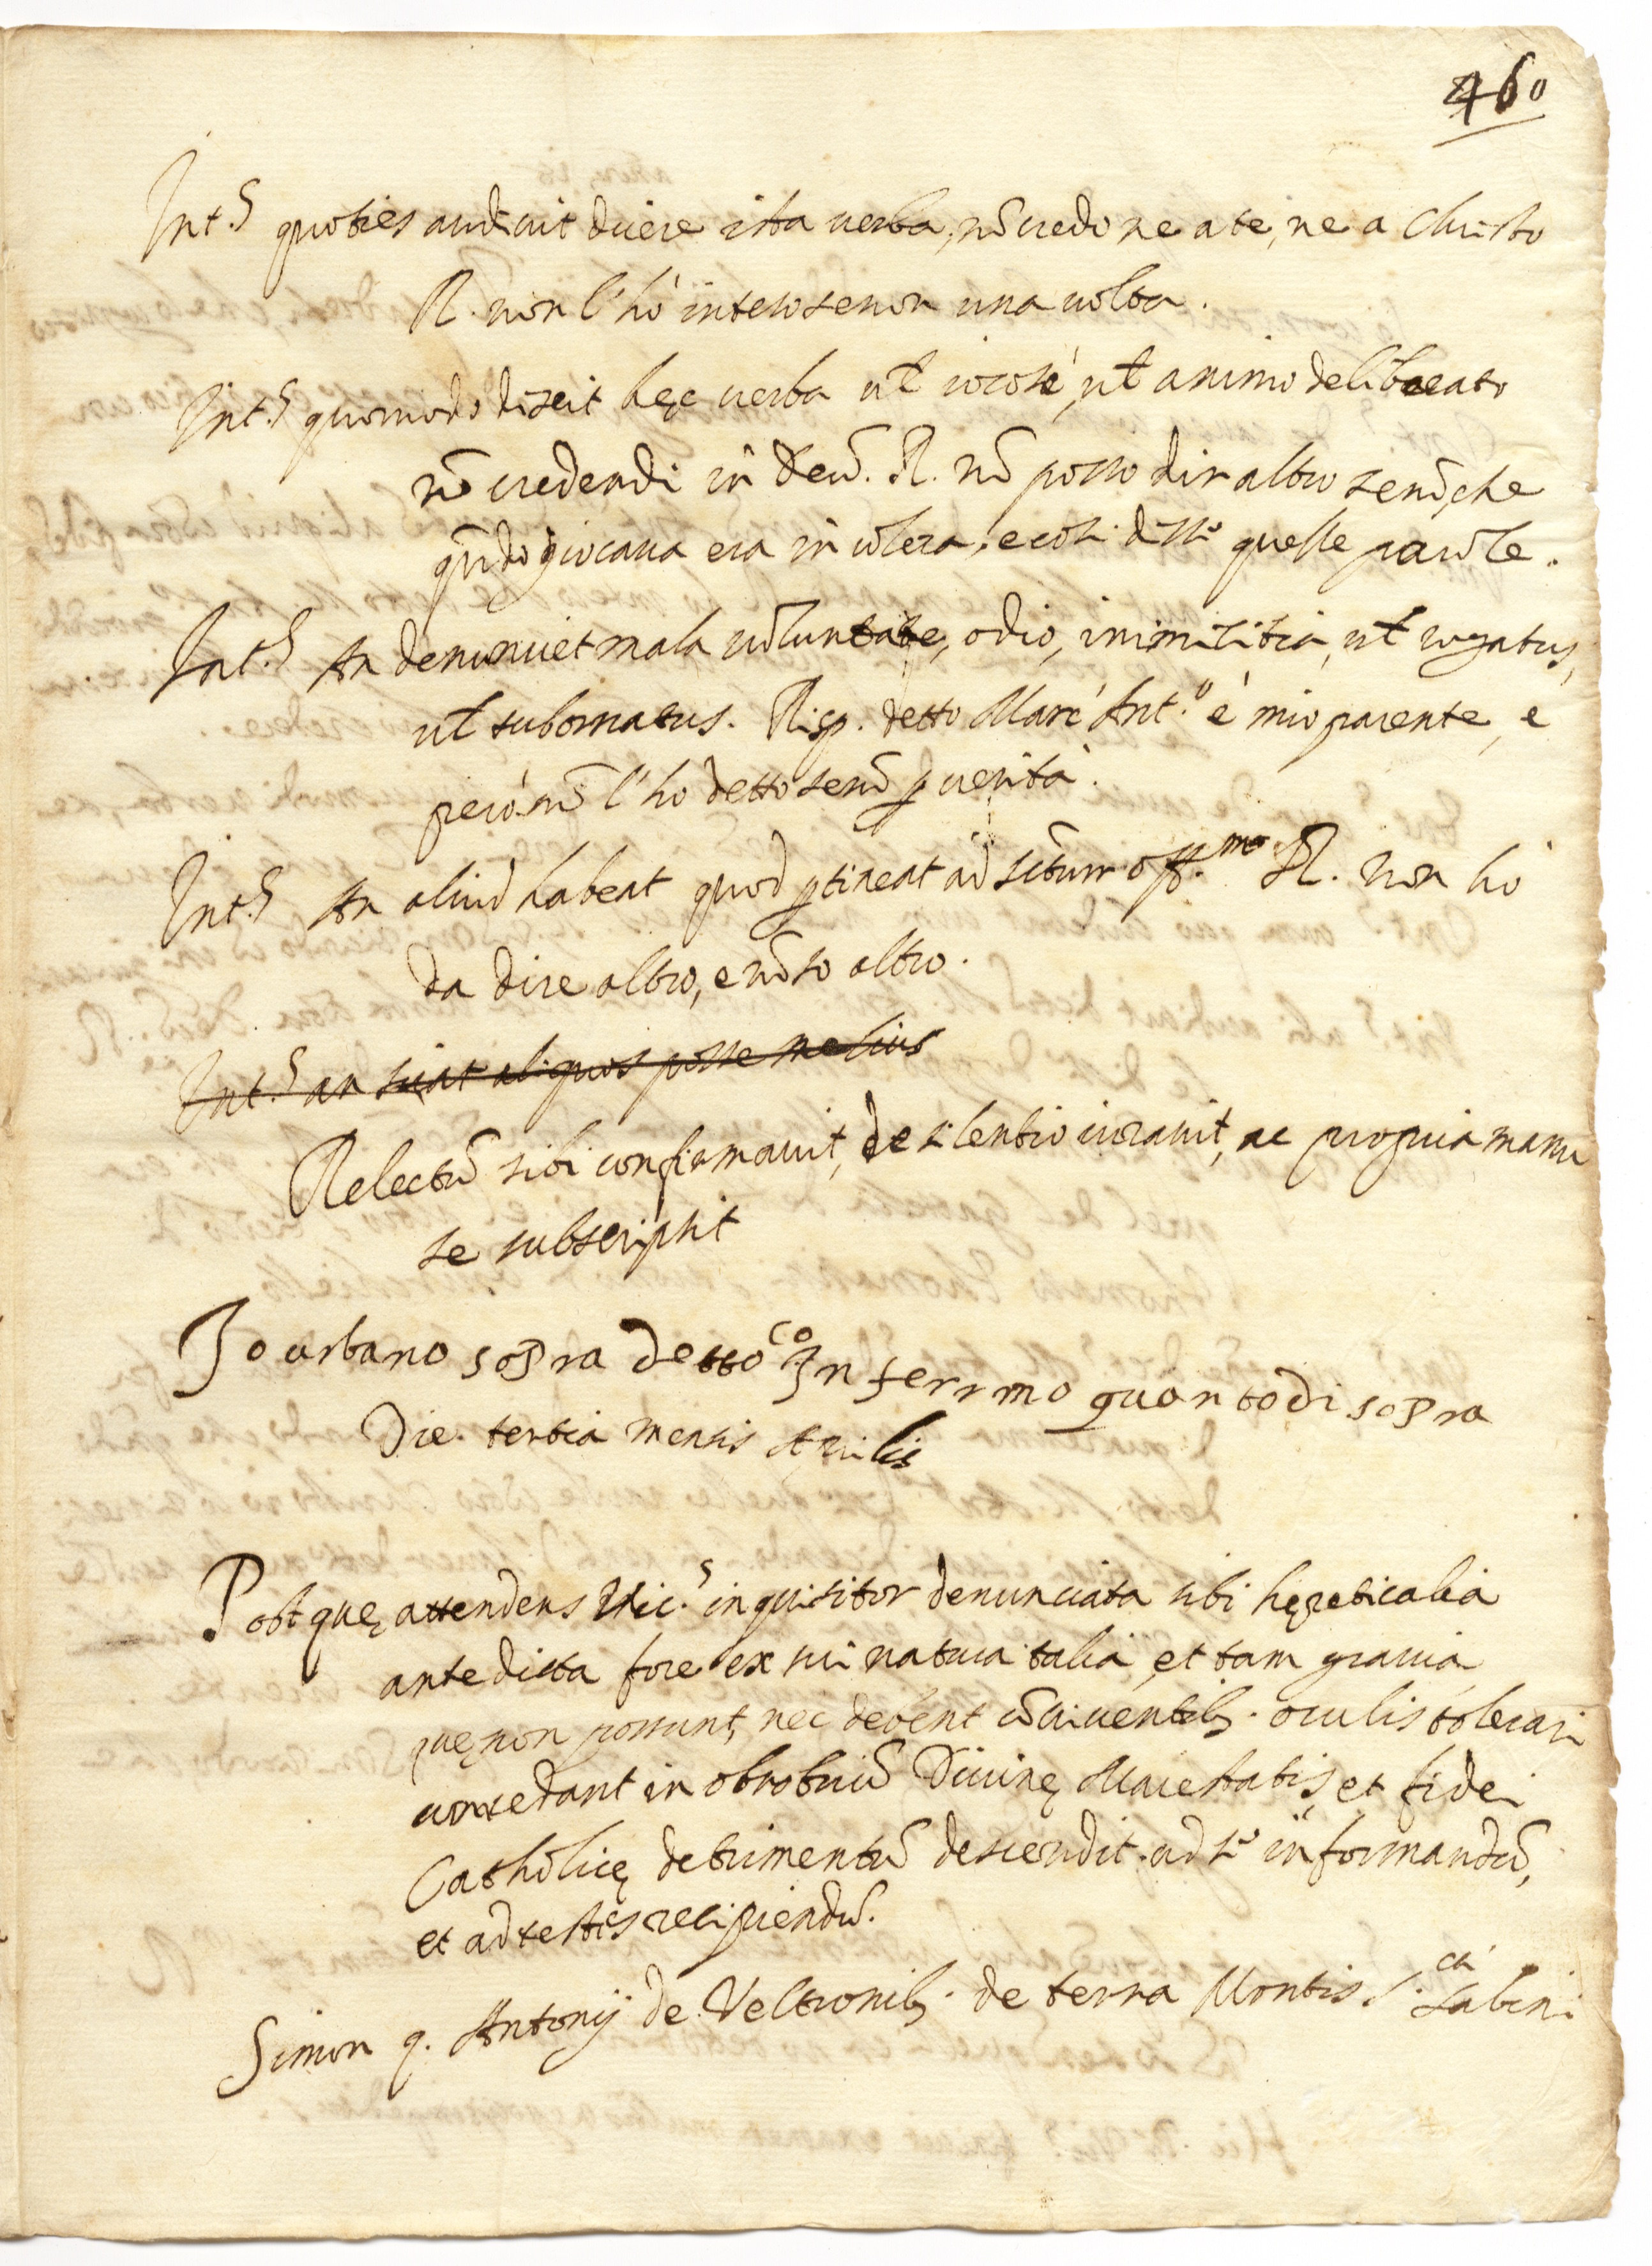 460
Int.s quoties audiuit dicere ista uerba, nō credo ne a te, ne a Christo
R. non l'hò inteso se non una uolta.
Int.s quomodo dixerit hęc uerba ut̄ iocosè, ut̄ animo deliberato
nō credendi in Deū. R. nō posso dir altro se nō, che
qn̄do giocaua era in colera, e così disse quelle parole.
Int.s An denunciet mala uoluntate, odio, inimicitia, ut̄ rogatus,
ut̄ subornatus. Risp. detto Marc'Ant.o è mio parente, e
però nō l'ho detto se nō p uerità.
Int.s An aliud habeat quod ptineat ad sctum off.m R. Non hò
da dire altro, e nō so altro.
Int.s an sciat aliquos posse melius
Relectū sibi confirmauit, de silentio iurauit, ac propria manu
se subscripsit
Io urbano sopra detto co In ferrmo quanto di sopra
Die tertia mensis Aprilis
Post quę attendens Vic.s inquisitor denunciata sibi hęreticalia
ante dicta fore ex sui natura talia, et tam grauia
quę non possunt, nec debent cōniuentib. oculis tolerari
cum cedant in obrobriū Diuinę Maiestatis, et fidei
Catholicę detrimentū descendit ad se informandū,
et ad testes recipiendū.
Simon q. Antonij de Veltronib. de terra Montis S. cti Sabini